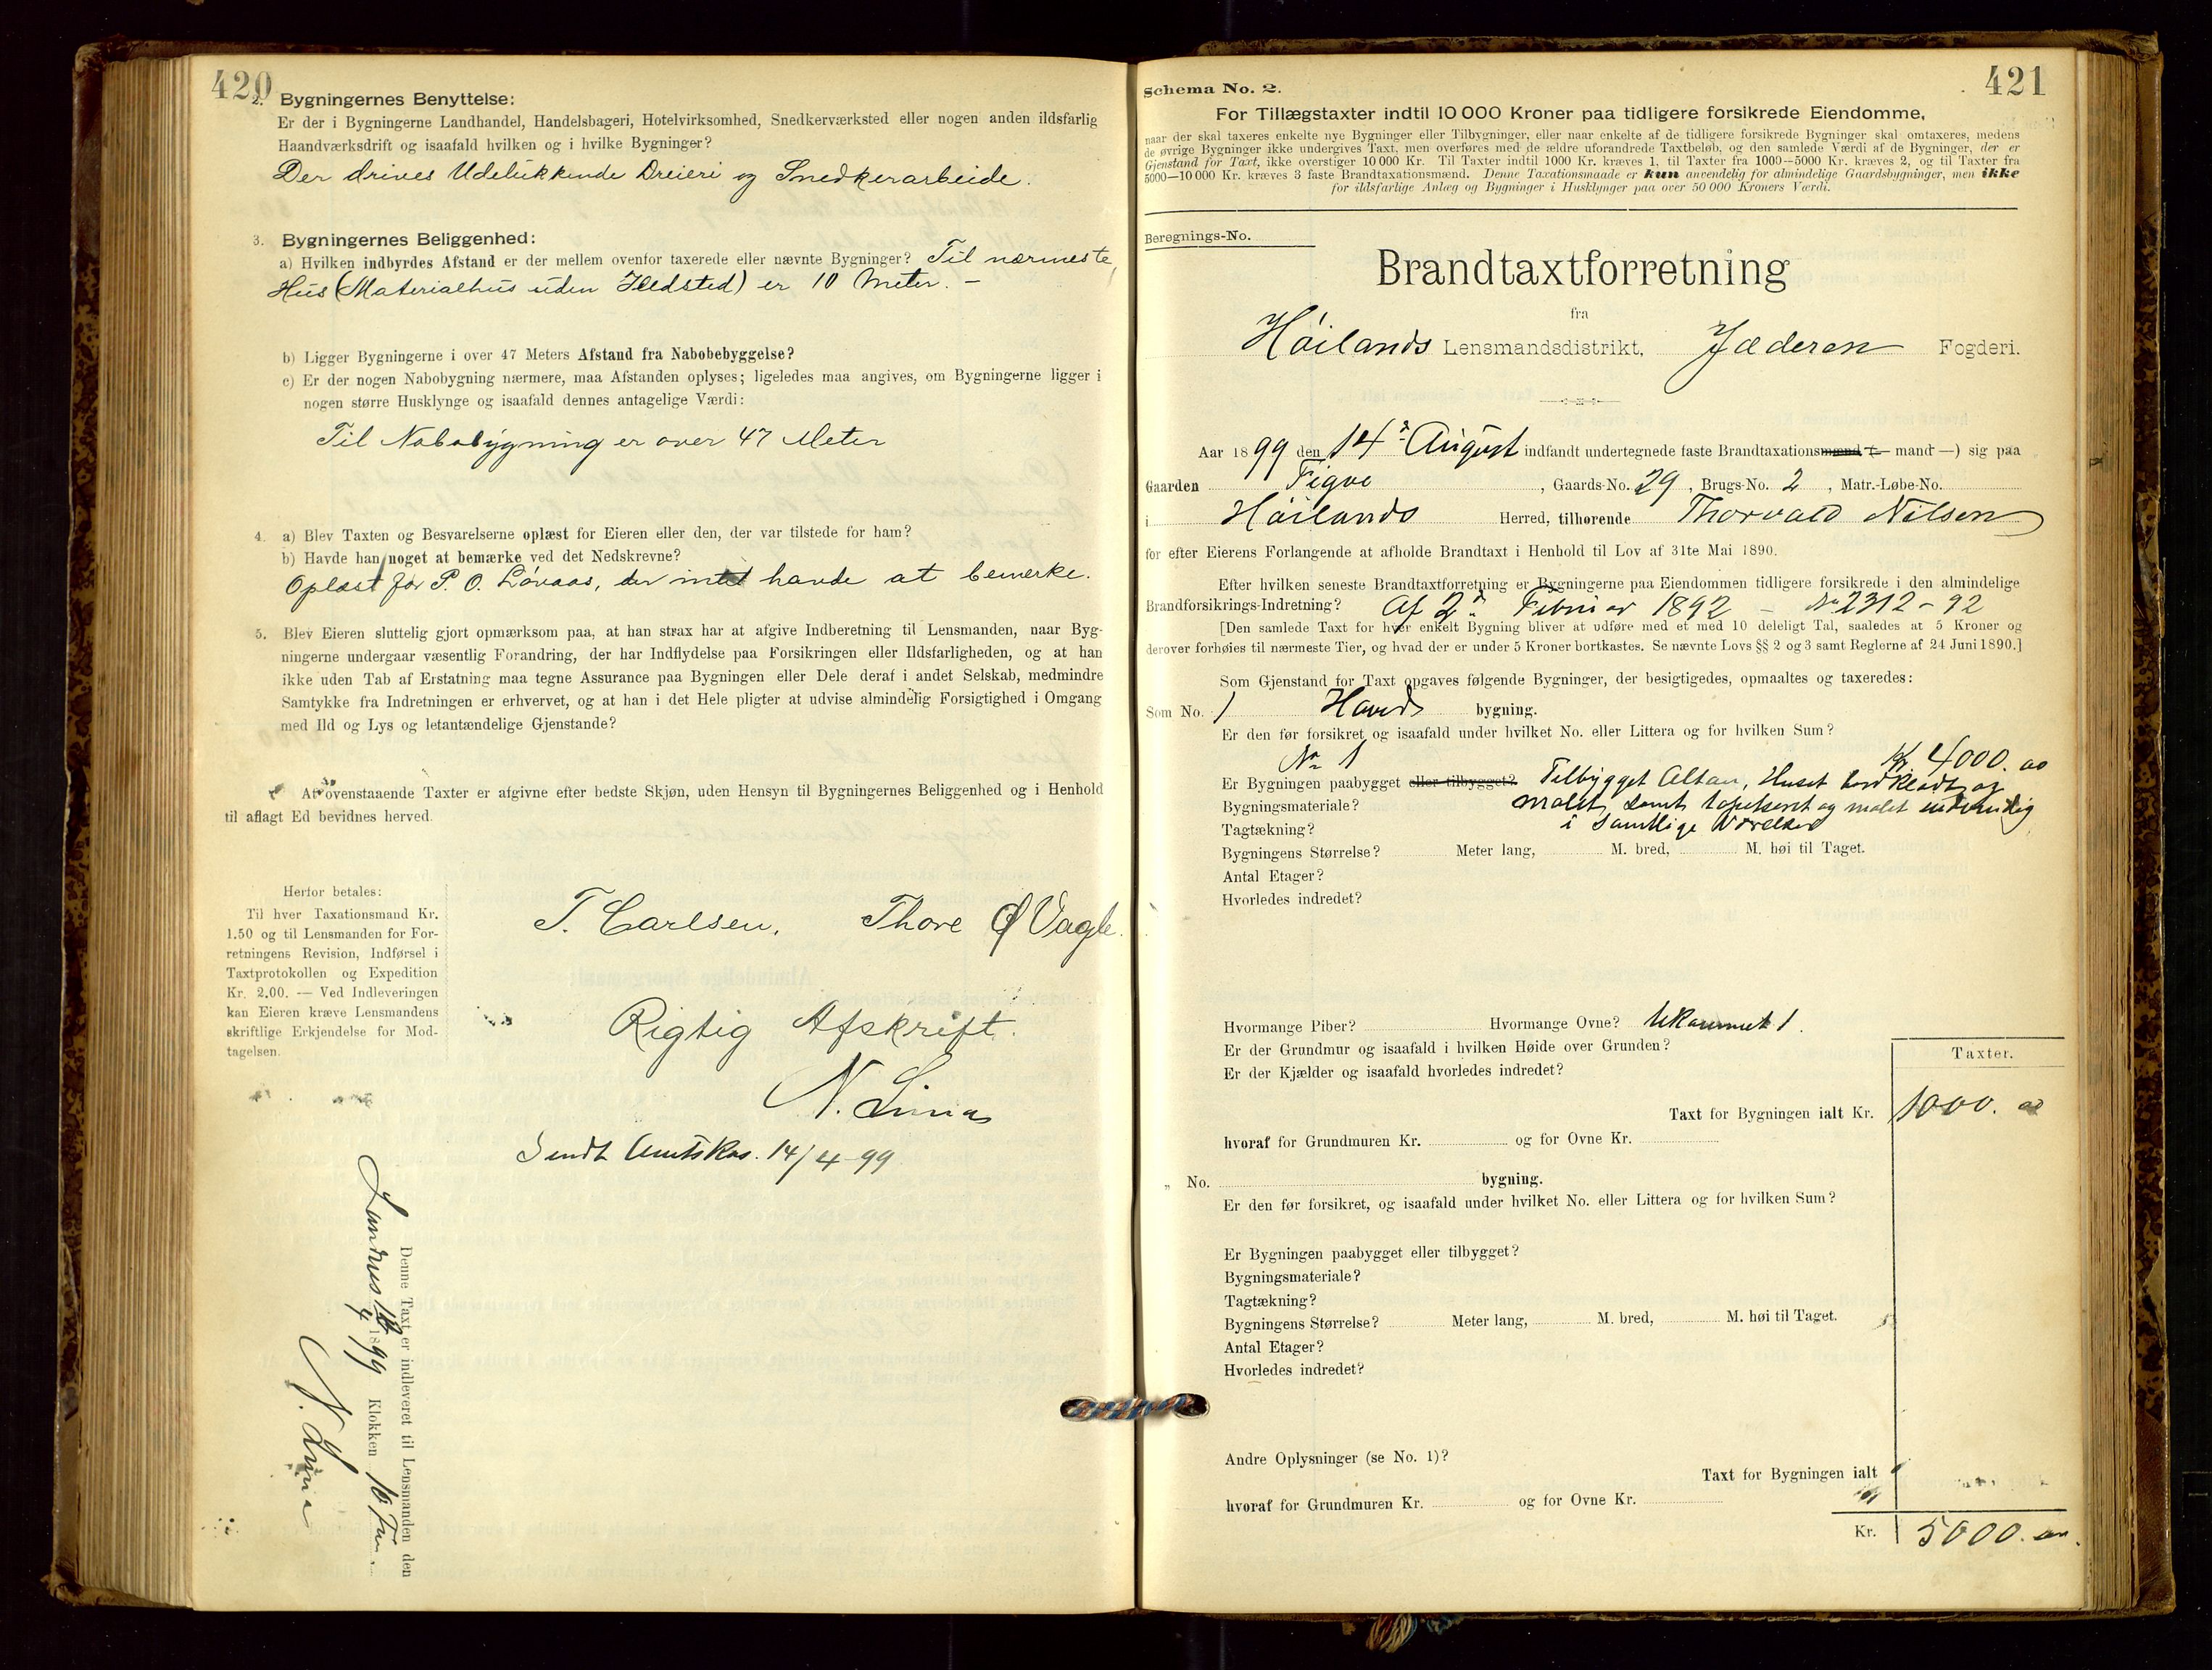 420
2. Bygningernes Benyttelse:
Er der i Bygningerne Landhandel, Handelsbageri, Hotelvirksomhed, Snedkerværksted eller nogen anden ildsfarlig
Haandværksdrift og isaafald hvilken og i hvilke Bygninger?
Der drives Udelukkende Dreieri og Snedkerarbeide.
3. Bygningernes Beliggenhed:
a) Hvilken indbyrdes Afstand er der mellem ovenfor taxerede eller nævnte Bygninger? Til nærmeste
Hus (Materialhus uden Ildsted) er 10 Meter. –
b) Ligger Bygningerne i over 47 Meters Afstand fra Nabobebyggelse?
c) Er der nogen Nabobygning nærmere, maa Afstanden oplyses; ligeledes maa angives, om Bygningerne ligger i
nogen større Husklynge og isaafald dennes antagelige Værdi:
Til Nabobygning er over 47 Meter
4. a) Blev Taxten og Besvarelserne oplæst for Eieren eller den, der var tilstede for ham?
b) Havde han noget at bemærke ved det Nedskrevne?
Oplæst for P. O. Lövaas, der intet havde at bemerke.
5. Blev Eieren sluttelig gjort opmærksom paa, at han strax har at afgive Indberetning til Lensmanden, naar Byg-
ningerne undergaar væsentlig Forandring, der har Indflydelse paa Forsikringen eller Ildsfarligheden, og at han
ikke uden Tab af Erstatning maa tegne Assurance paa Bygningen eller Dele deraf i andet Selskab, medmindre
Samtykke fra Indretningen er erhvervet, og at han i det Hele pligter at udvise almindelig Forsigtighed i Omgang
med Ild og Lys og letantændelige Gjenstande?
At ovenstaaende Taxter er afgivne efter bedste Skjøn, uden Hensyn til Bygningernes Beliggenhed og i Henhold
til aflagt Ed bevidnes herved.
Herfor betales:
Til hver Taxationsmand Kr.
1.50 og til Lensmanden for For-
retningens Revision, Indførsel i
Taxtprotokollen og Expedition
Kr. 2.00. — Ved Indleveringen
kan Eieren kræve Lensmandens
skriftlige Erkjendelse for Mod-
tagelsen.
T. Carlsen. Thore Ø Vagle.
Rigtig Afskrift.
N. Lima
Sendt Amtskas. 14/4 99
Denne Taxt er indleveret til Lensmanden den
Sandnes 4 1899 Klokken 10 Fm.
N. Lima
421
Schema No. 2.
For Tillægstaxter indtil 10 000 Kroner paa tidligere forsikrede Eiendomme,
naar der skal taxeres enkelte nye Bygninger eller Tilbygninger, eller naar enkelte af de tidligere forsikrede Bygninger skal omtaxeres, medens
de øvrige Bygninger ikke undergives Taxt, men overføres med de ældre uforandrede Taxtbeløb, og den samlede Værdi af de Bygninger, der er
Gjenstand for Taxt, ikke overstiger 10 000 Kr. Til Taxter indtil 1000 Kr. kræves 1, til Taxter fra 1000—5000 Kr. kræves 2, og til Taxter fra
5000—10 000 Kr. kræves 3 faste Brandtaxationsmænd. Denne Taxationsmaade er kun anvendelig for almindelige Gaardsbygninger, men ikke
for ildsfarlige Anlæg og Bygninger i Husklynger paa over 50 000 Kroners Værdi.
Beregnings-No.
Brandtaxtforretning
fra
Höilands Lensmandsdistrikt, Jæderen Fogderi.
Aar 1899 den 14de August indfandt undertegnede faste Brandtaxationsmænd (— mand —) sig paa
Gaarden Figve, Gaards-No. 29, Brugs-No. 2, Matr.-Løbe-No.
i Höilands Herred, tilhørende Thorvald Nilsen
for efter Eierens Forlangende at afholde Brandtaxt i Henhold til Lov af 31te Mai 1890.
Efter hvilken seneste Brandtaxtforretning er Bygningerne paa Eiendommen tidligere forsikrede i den almindelige
Brandforsikrings-Indretning? Af 2d Februar 1892 – No 2312 – 92
[Den samlede Taxt for hver enkelt Bygning bliver at udføre med et med 10 deleligt Tal, saaledes at 5 Kroner og
derover forhøies til nærmeste Tier, og hvad der er under 5 Kroner bortkastes. Se nævnte Lovs §§ 2 og 3 samt Reglerne af 24 Juni 1890.]
Som Gjenstand for Taxt opgaves følgende Bygninger, der besigtigedes, opmaaltes og taxeredes:
Som No. 1 Hoved bygning.
Er den før forsikret og isaafald under hvilket No. eller Littera og for hvilken Sum?
No 1 Kr 4000.
Er Bygningen paabygget eller tilbygget? Tilbygget Altan, Huset bordklædt og
Bygningsmateriale? malet, samt tapetseret og malet indvendig
Tagtækning? i samtlige Værelser
Bygningens Størrelse? Meter lang, M. bred, M. høi til Taget.
Antal Etager?
Hvorledes indredet?
Hvormange Piber? Hvormange Ovne? 1
Er der Grundmur og isaafald i hvilken Høide over Grunden?
Er der Kjælder og isaafald hvorledes indredet?
Taxter.
Taxt for Bygningen ialt Kr. 1000.
hvoraf for Grundmuren Kr. og for Ovne Kr.
„ No. bygning.
Er den før forsikret, og isaafald under hvilket No. eller Littera og for hvilken Sum?
Er Bygningen paabygget eller tilbygget?
Bygningsmateriale?
Tagtækning?
Bygningens Størrelse? Meter lang, M. bred, M. høi til Taget.
Antal Etager?
Hvorledes indredet?
Andre Oplysninger (se No. 1)?
Taxt for Bygningen ialt
hvoraf for Grundmuren Kr. og for Ovne Kr.
Kr. 5000.